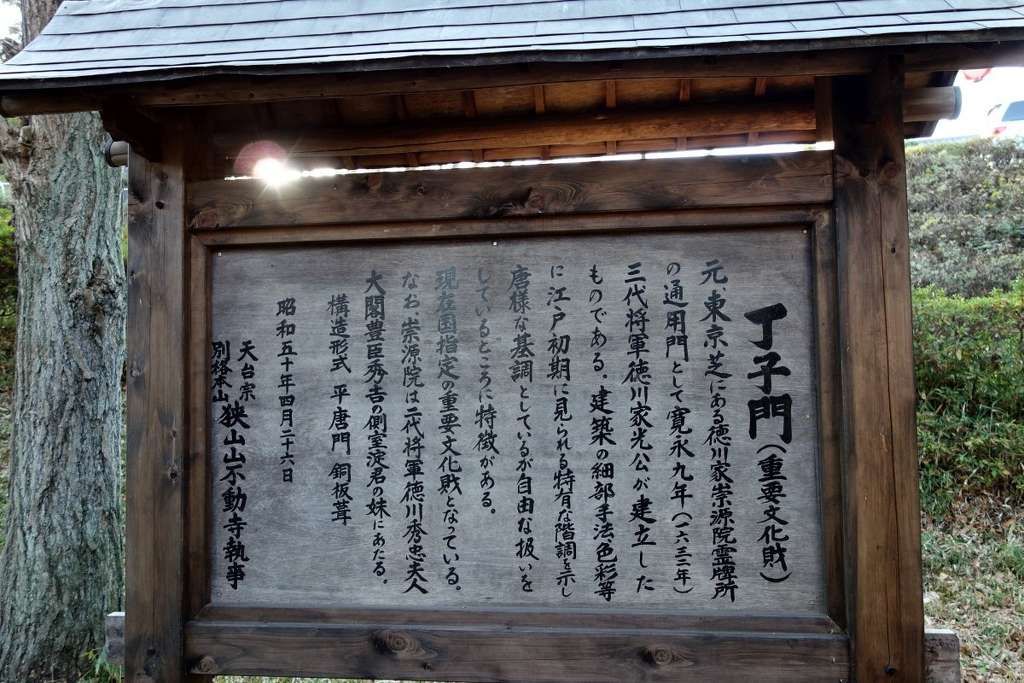 丁子門(重要文化財)
元、東京芝にある徳川家崇源院霊牌所
の通用門として寛永九年(一六三三年)
三代将軍徳川家光公が建立した
ものである。建築の細部手法色彩等
に江戸初期に見られる特有な階調を示し
唐様な基調としているが自由な扱いを
しているところに特徴がある。
現在国指定の重要文化財となっている。
なお、崇源院は二代将軍徳川秀忠夫人
大閤豊臣秀吉の側室淀君の妹にあたる。
構造形式 平唐門 銅板葺
昭和五十年四月二十六日
天台宗
別格本山 狭山山不動寺執事